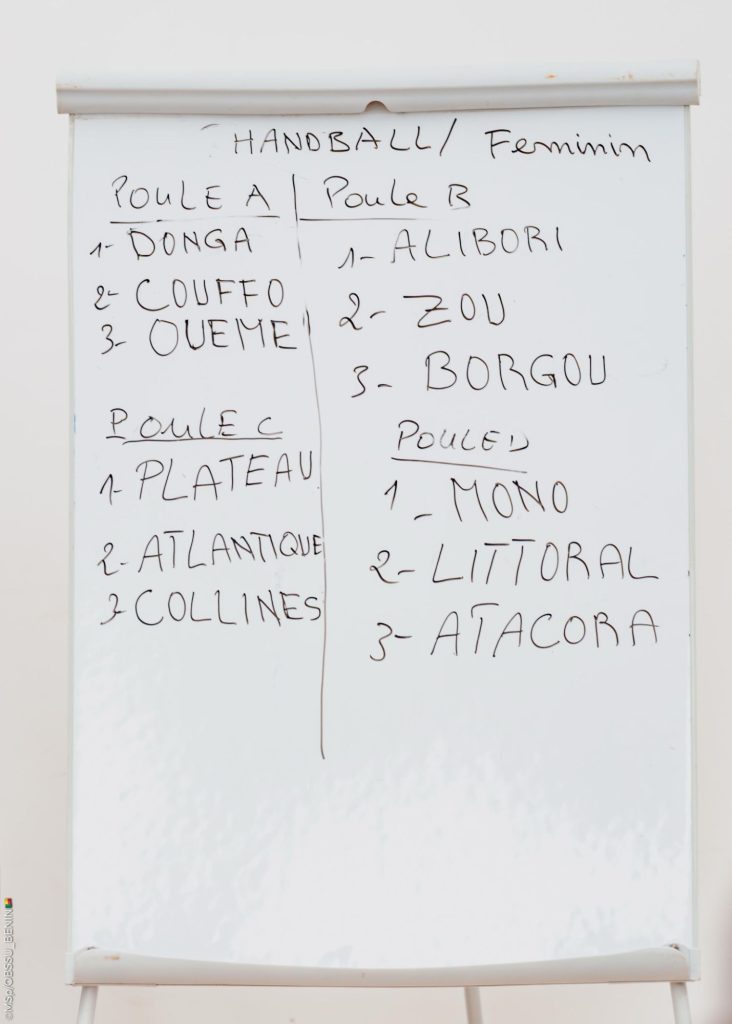 HANDBALL/ Feminin
POULE A
1- DONGA
2- COUFFO
3- OUEME
Poule B
1- ALIBORI
2- ZOU
3- BORGOU
POULE C
1- PLATEAU
2- ATLANTIQUE
3- COLLINES
POULE D
1- MONO
2- LITTORAL
3- ATACORA
©MSp/OBSSU_BENIN